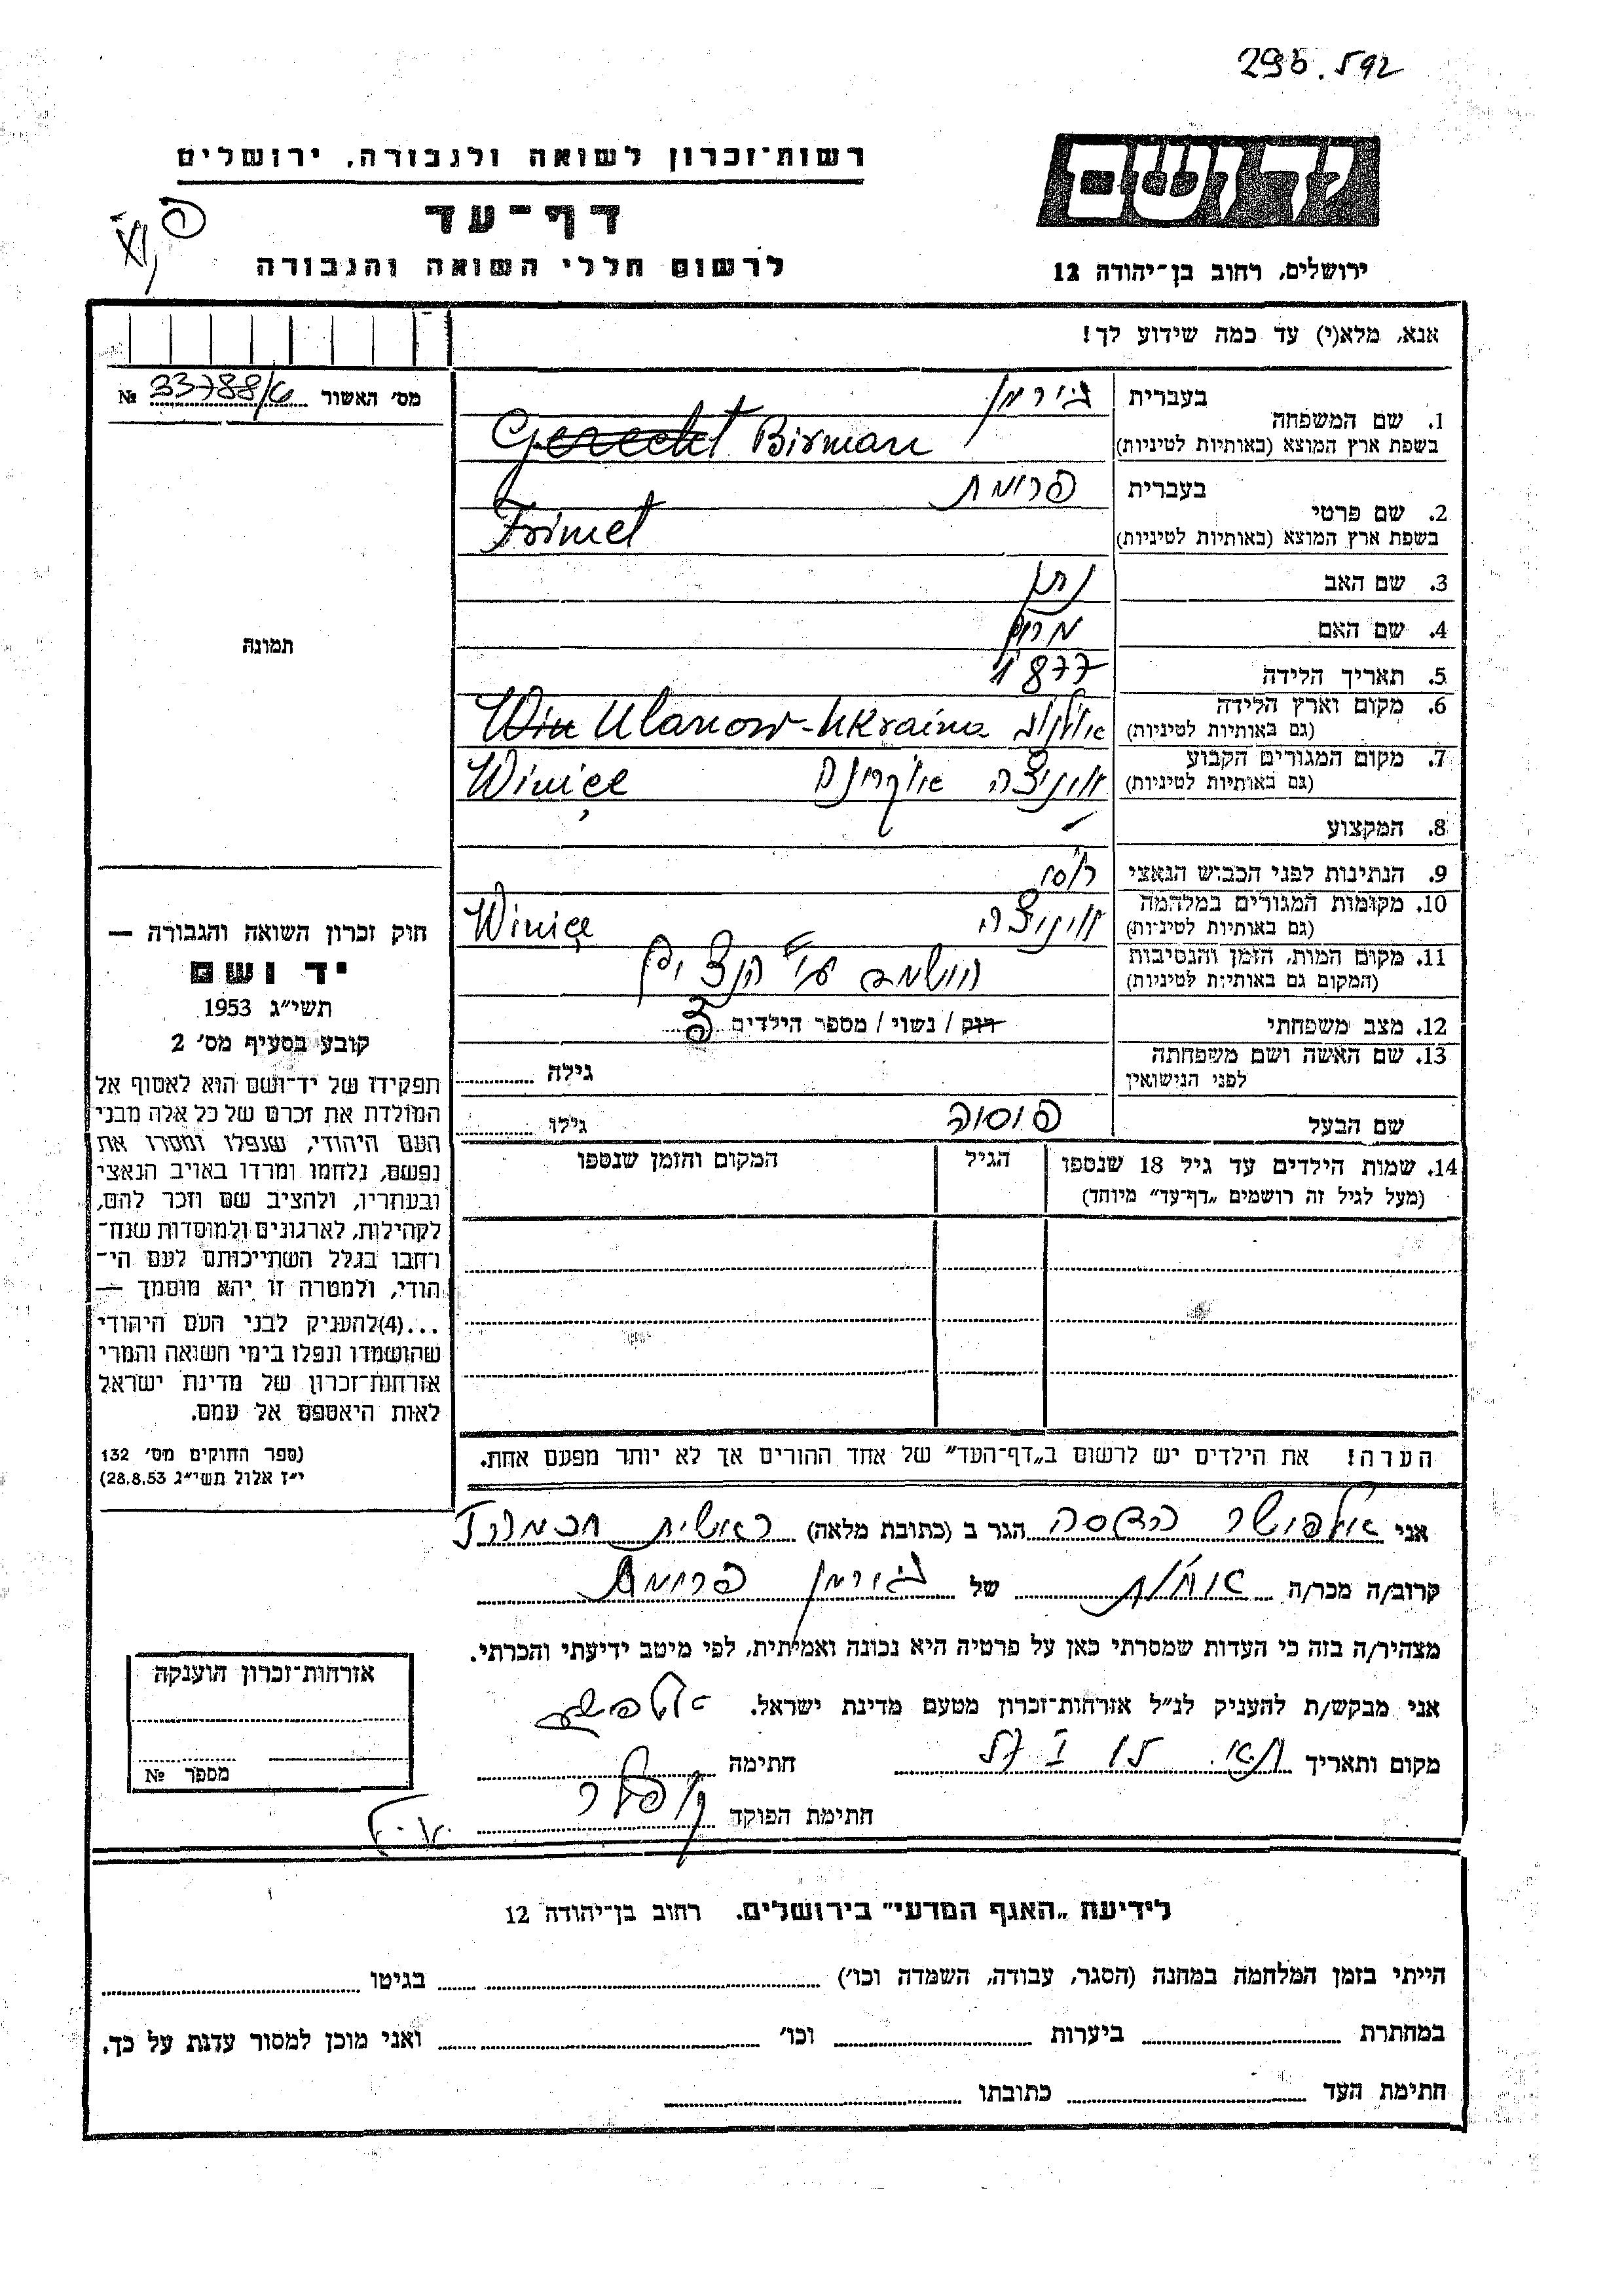 296.592
רשות־זכרון לשואה ולגבורה, ירושלים
יד ושם
דף־עד
לרשום חללי השואה והגבורה
ירושלים, רחוב בן־יהודה 12
אנא, מלא(י) עד כמה שידוע לך!
מס׳ האשור 33788/6 №
1. שם המשפחה
בעברית בירמן
בשפת ארץ המוצא (באותיות לטיניות) Gerecht Birman
2. שם פרטי
בעברית פרומת
בשפת ארץ המוצא (באותיות לטיניות) Frimet
3. שם האב נתן
4. שם האם
5. תאריך הלידה 1877
6. מקום וארץ הלידה
(גם באותיות לטיניות) אולנוב Win Ulanow-Ukraina
7. מקום המגורים הקבוע
(גם באותיות לטיניות) ויניצה Winiçe
8. המקצוע
9. הנתינות לפני הכבוש הנאצי
10. מקומות המגורים במלחמה
(גם באותיות לטיניות) ויניצה Winiçe
11. מקום המות, הזמן והנסיבות
(המקום גם באותיות לטיניות) הושמד ע״י הנצים
12. מצב משפחתי רוק / נשוי / מספר הילדים
13. שם האשה ושם משפחתה
לפני הנישואין גילה
שם הבעל גילו
14. שמות הילדים עד גיל 18 שנספו הגיל המקום והזמן שנספו
(מעל לגיל זה רושמים „דף־עד״ מיוחד)
הערה! את הילדים יש לרשום ב„דף־העד״ של אחד ההורים אך לא יותר מפעם אחת.
תמונה
חוק זכרון השואה והגבורה —
יד ושם
תשי״ג 1953
קובע בסעיף מס׳ 2
תפקידו של יד־ושם הוא לאסוף אל
המולדת את זכרם של כל אלה מבני
העם היהודי, שנפלו ומסרו את
נפשם, נלחמו ומרדו באויב הנאצי
ובעוזריו, ולהציב שם וזכר להם,
לקהילות, לארגונים ולמוסדות שנח־
רחבו בגלל השתייכותם לעם הי־
הודי, ולמטרה זו יהא מוסמך —
...(4)להעניק לבני העם היהודי
שהושמדו ונפלו בימי השואה והמרי
אזרחות־זכרון של מדינת ישראל
לאות היאספם אל עמם.
(ספר החוקים מס׳ 132
י״ז אלול תשי״ג 28.8.53)
אני הדסה הגר ב (כתובת מלאה) ראשית חכמה
קרוב/ה מכר/ה של בירמן פרומת
מצהיר/ה בזה כי העדות שמסרתי כאן על פרטיה היא נכונה ואמיתית, לפי מיטב ידיעתי והכרתי.
אני מבקש/ת להעניק לנ״ל אזרחות־זכרון מטעם מדינת ישראל.
מקום ותאריך חתימה
חתימת הפוקד
אזרחות־זכרון הוענקה
מספר №
לידיעת „האגף המדעי״ בירושלים, רחוב בן־יהודה 12
הייתי בזמן המלחמה במחנה (הסגר, עבודה, השמדה וכו׳) בגיטו
במחתרת ביערות וכו׳ ואני מוכן למסור עדות על כך.
חתימת העד כתובתו